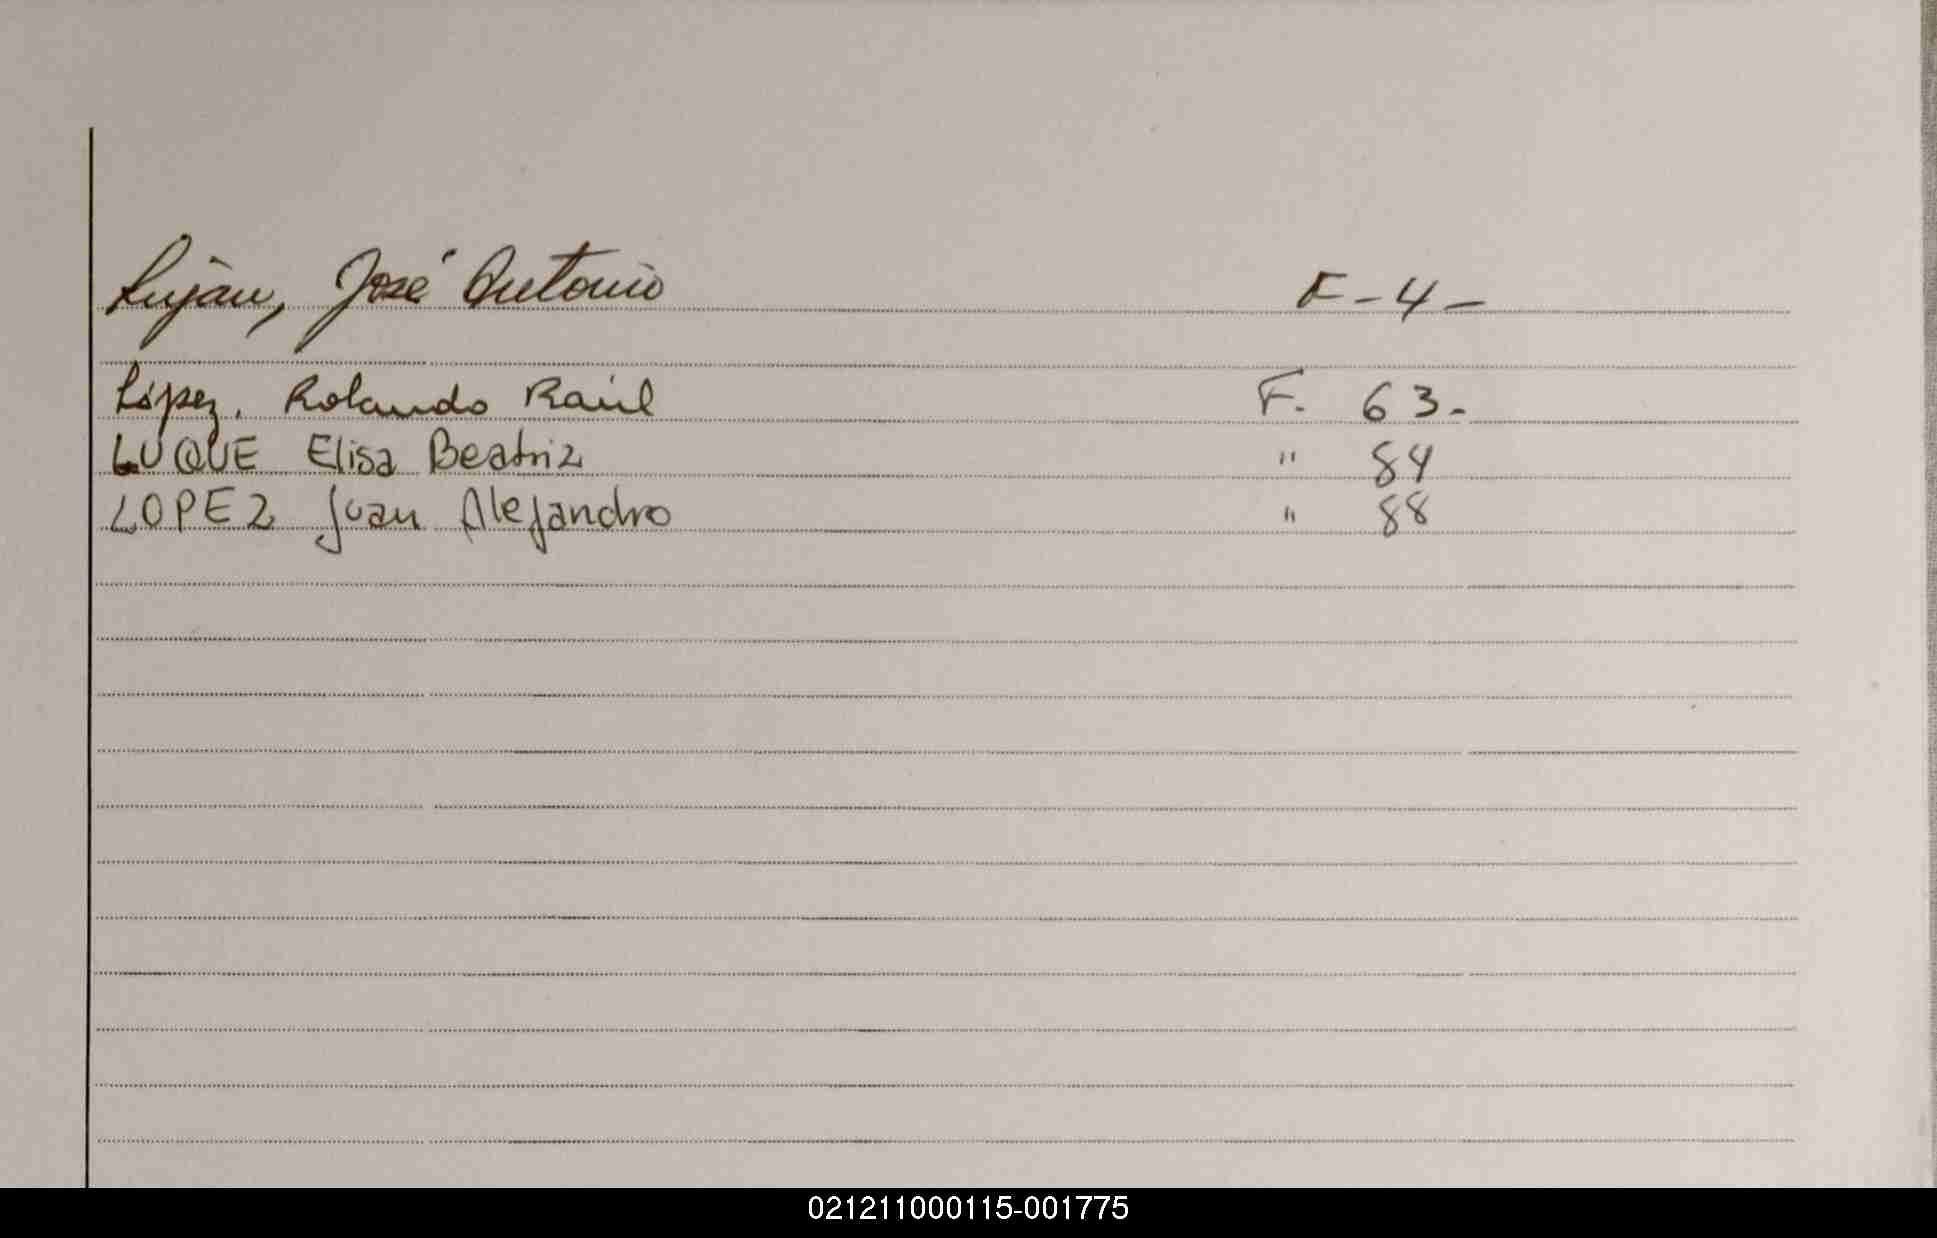 Luján, José Antonio F-4-
López, Rolando Raúl F. 63-
LUQUE Elisa Beatriz " 84
LOPEZ Juan Alejandro " 88
021211000115-001775